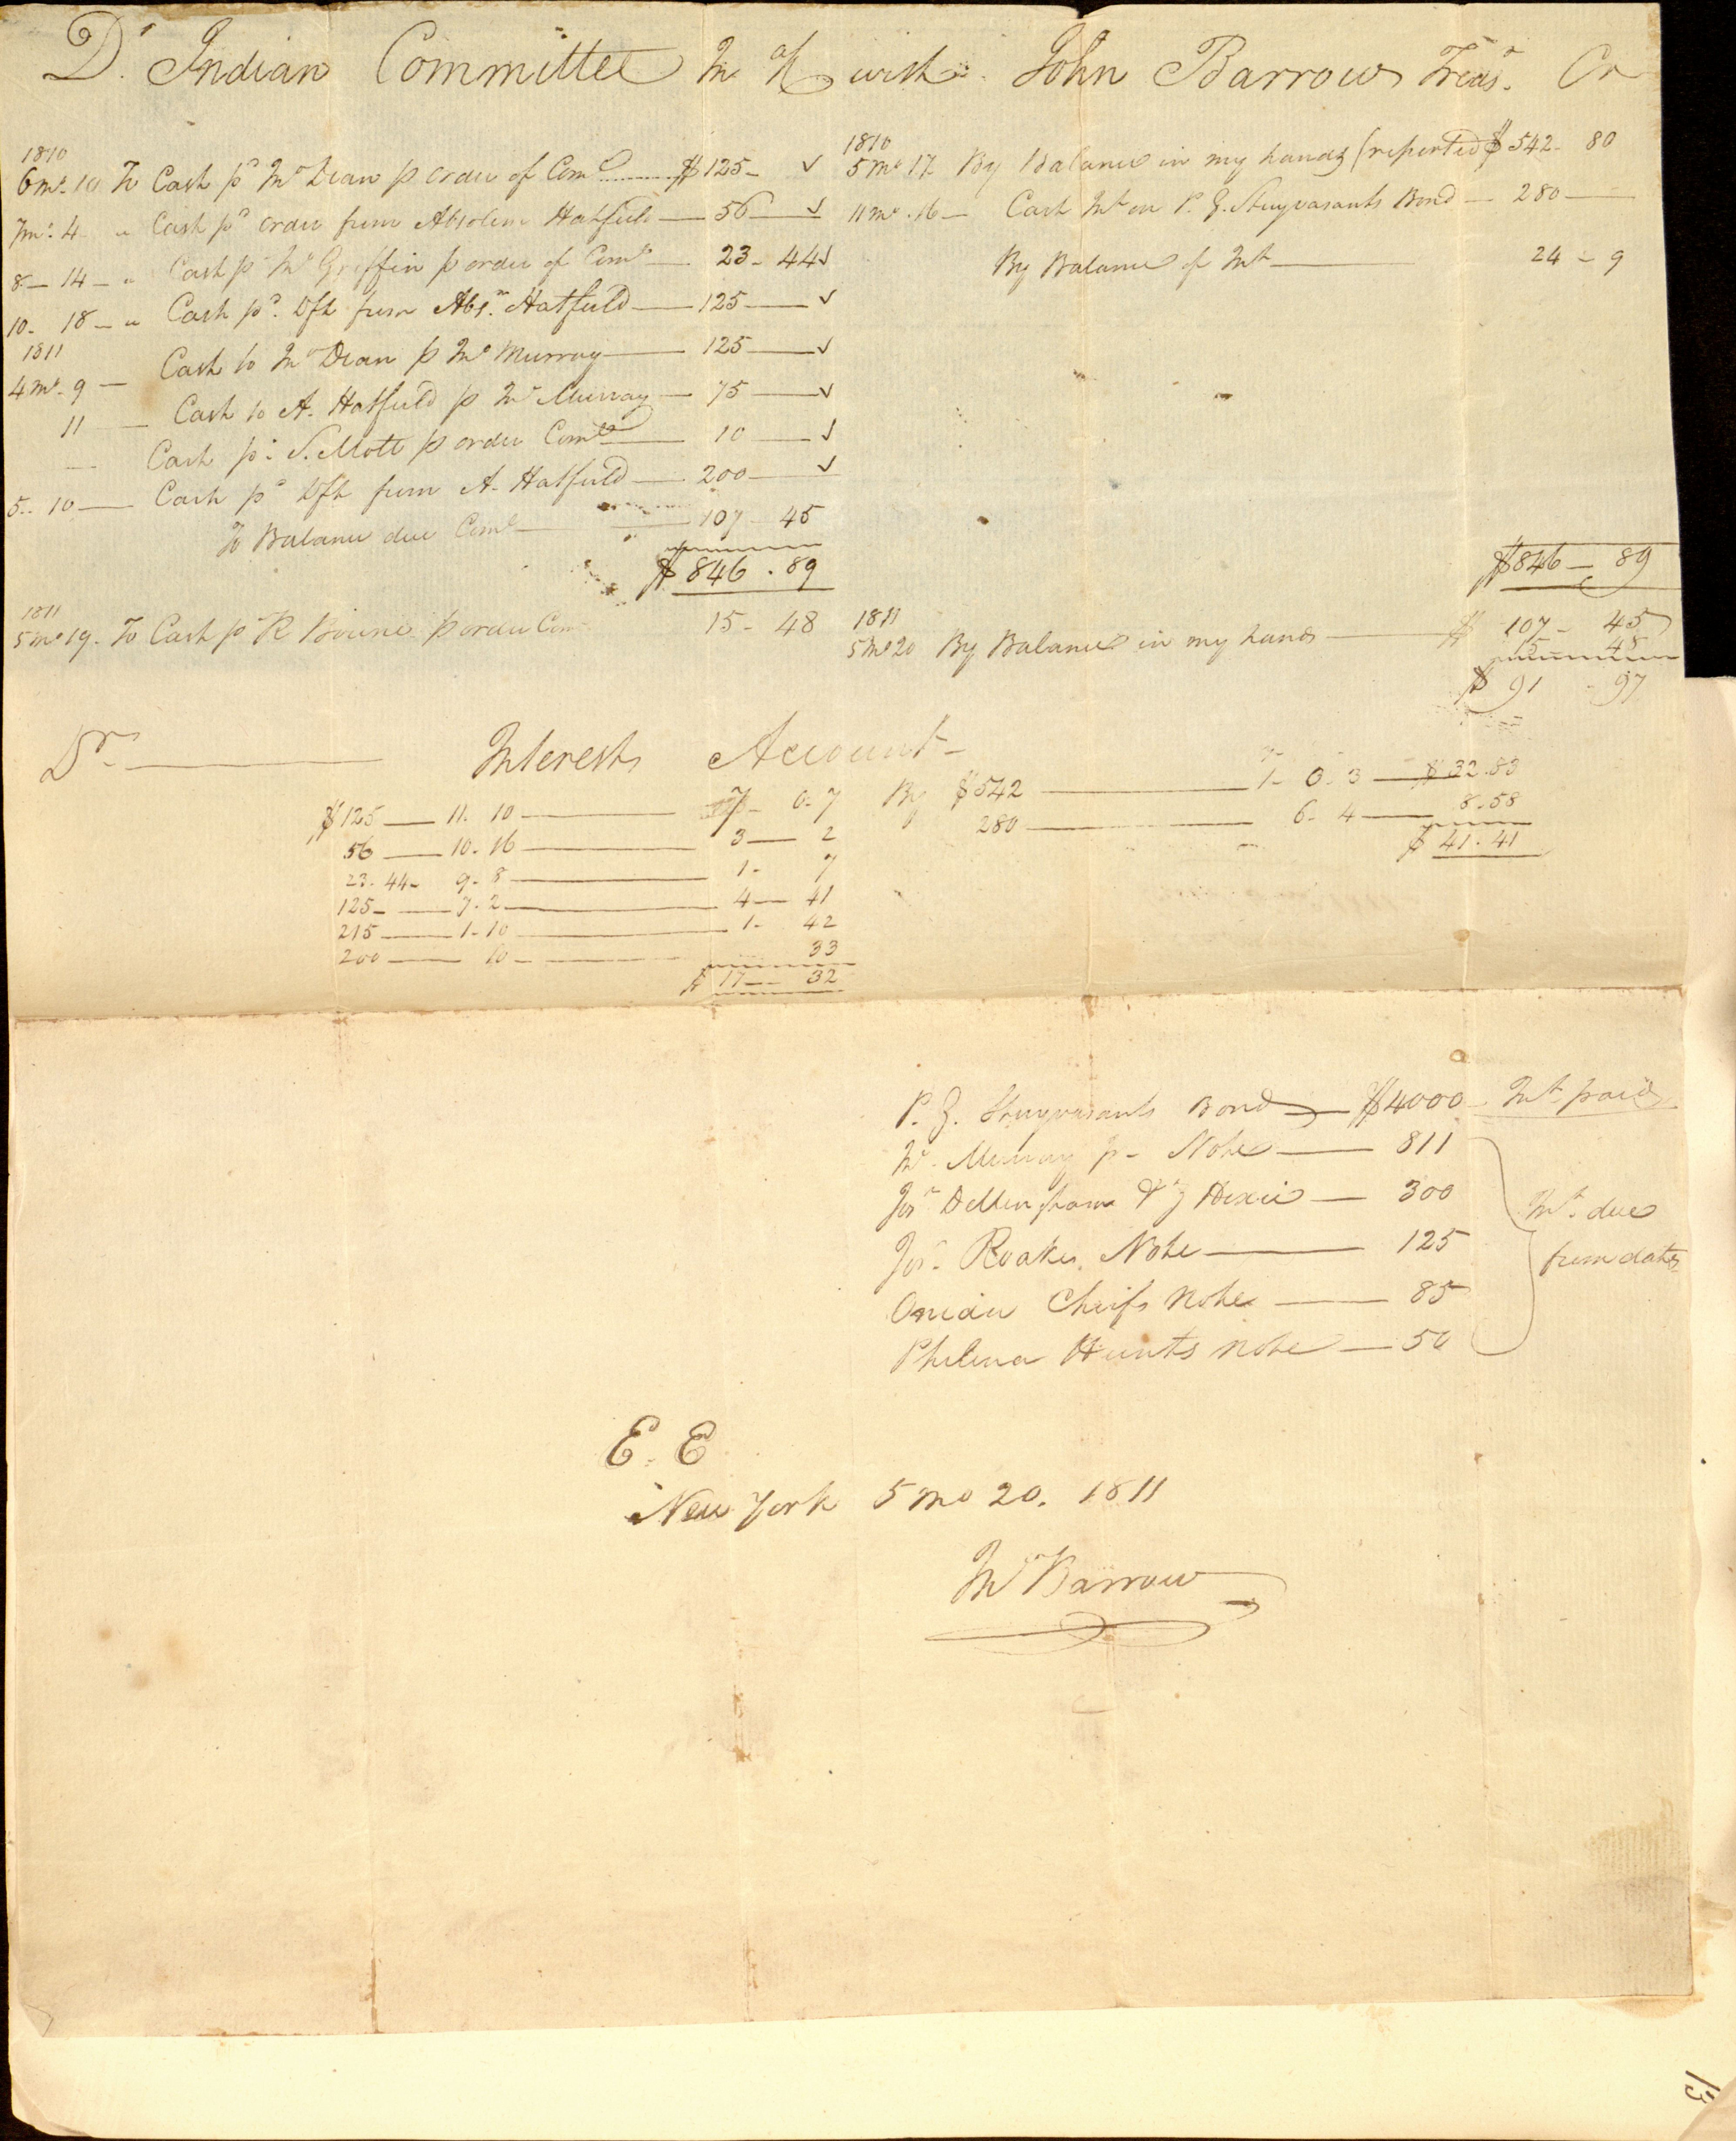 Dr Indian Committee In A/c with John Barrow Treasr. Cr
1810
6mo. 10 To Cash pd Jno Dean p order of Come $125- ✓
7mo. 4 " Cash pd order from Absolem Hatfield 56 ✓
8 - 14 - " Cash pd Jno Griffin p order of Come 23-44 ✓
10. 18 - " Cash pd. Dft from Absm. Hatfield 125 ✓
1811
4mo. 9 - Cash to Jno Dean p Jno Murray 125 ✓
11 - Cash to A. Hatfield p Jno Murray 75 ✓
Cash pd. S. Mott p order Come 10 ✓
5.. 10 Cash pd Dft from A. Hatfield 200 ✓
To Balance due Come 107 45
$846.89
1811
5mo 19. To Cash pd R Bowne p order Com 15-48
1810
5mo 17 By Balance in my hands (reported $542-80
11mo. 16 - Cash Int on P. G. Stuyvasants Bond - 280
By Balance of Int 24-9
$846-89
1811
5mo 20 By Balance in my hands $107-45
15 48
$91-97
Dr Interests Account
$125 11. 10 7-0.7
56 10. 16 3 2
23.44 - 9-8 1- 7
125 - 7.2 4-41
215 1-10 1-42
200 10 - 33
$17-32
By $542 1-0.3 $32.83
280 6-4 8.58
$41.41
P. G. Stuyvasants Bond $4000 Int paid
Jno. Murray Jr Note 811
Jos Dellingham & J Dexie 300
Jos. Roakes Note 125
Onida Cheifs note 85
Philena Hunts note 50
Int. due
from dates
E. E
New York 5mo 20. 1811
Jno Barrow
13